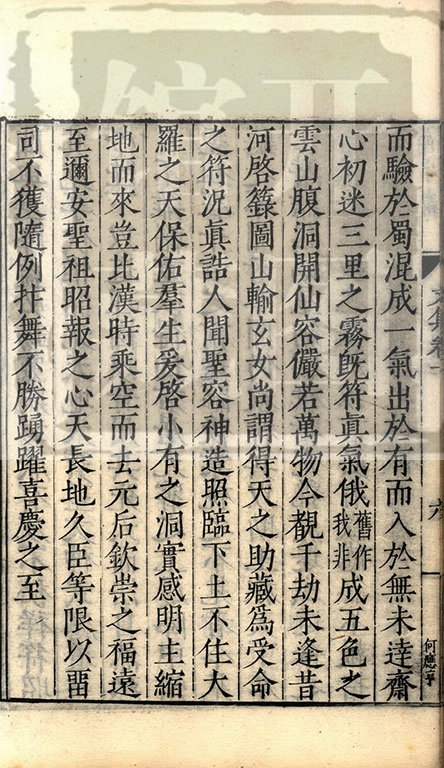 而驗於蜀混成一氣出於有而入於無未達齋
心初迷三里之霧既符真氣俄舊作我非成五色之
雲山腹洞開仙容儼若萬物今覩千劫未逢昔
河啓籙圖山輸玄女尚謂得天之助藏為受命
之符況真誥人聞聖容神造照臨下土不住大
羅之天保佑羣生爰啓小有之洞實感明主縮
地而來豈比漢時乘空而去元后欽崇之福遠
至邇安聖祖昭報之心天長地久臣等限以畱
司不獲隨例抃舞不勝踴躍喜慶之至
六
何應亨